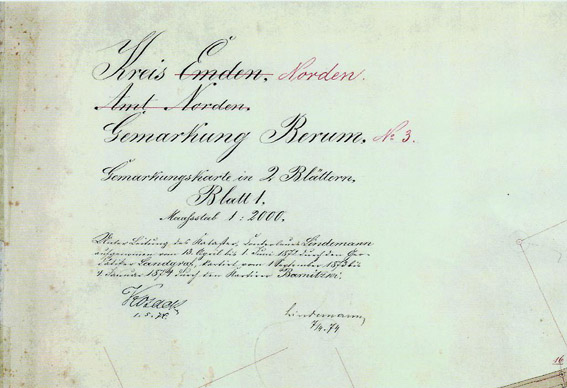 Kreis Emden. Norden.
Amt Norden.
Gemarkung Berum. No 3.
Gemarkungskarte in 2 Blättern.
Blatt 1.
Maafsstab 1 : 2000.
Unter Leitung des Kataster Lindemann
aufgenommen vom 13. April bis 1. Juni 1872 durch den Geo-
Landgraf, kartirt vom 1 November 1873 bis
9 Januar 1874 durch den
Lindemann,
7/4. 74
16